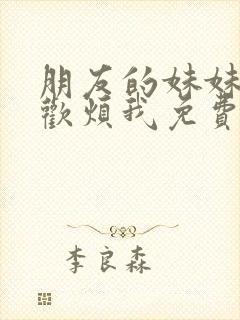 朋友的妹妹
歡煩我免費
李良森